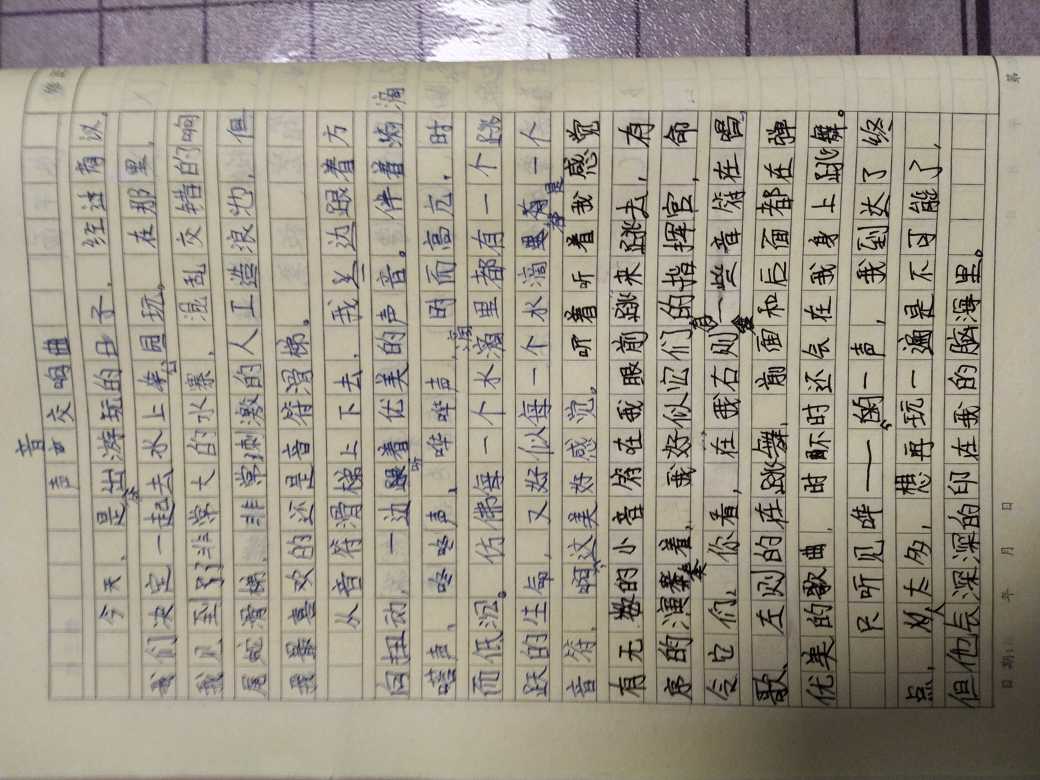 声音交响曲
今天，是出游玩的日子，经过商议，
我们决定一起去水上乐园玩。在那里，
我见到了非常大的水寨，混乱交错的响
尾蛇滑梯，非常刺激的人工造浪池，但
我最喜欢的还是音符滑梯。
从音符滑梯上下去，我一边跟着方
向扭动，一边听着优美的声音。伴着滴滴
嗒声，咚咚声，哗哗声，时而高亢，时
而低沉。仿佛每一个水滴里都有一个跳
跃的生命，又好似每一个水滴都是一个
音符，这美好感觉。听着听着我感觉
有无数的小音符在我眼前跳来跳去，有
序的演奏着，我好似它们的指挥官，命
令它们，你看，在我右则有一些音符在唱
歌，左则的在跳舞，前面和后面都在弹奏
优美的歌曲，时不时还会在我身上跳舞。
只听见哗——的一声，我到达了终
点，人太多，想再玩一遍是不可能了，
但他长深深的印在我的脑海里。
日期： 年 月 日